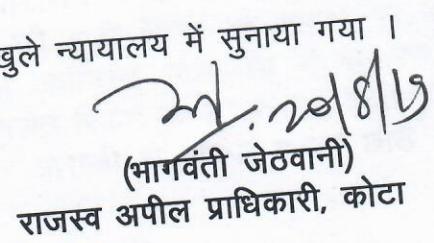 खुले न्यायालय में सुनाया गया ।
(भागवंती जेठवानी)
राजस्व अपील प्राधिकारी, कोटा